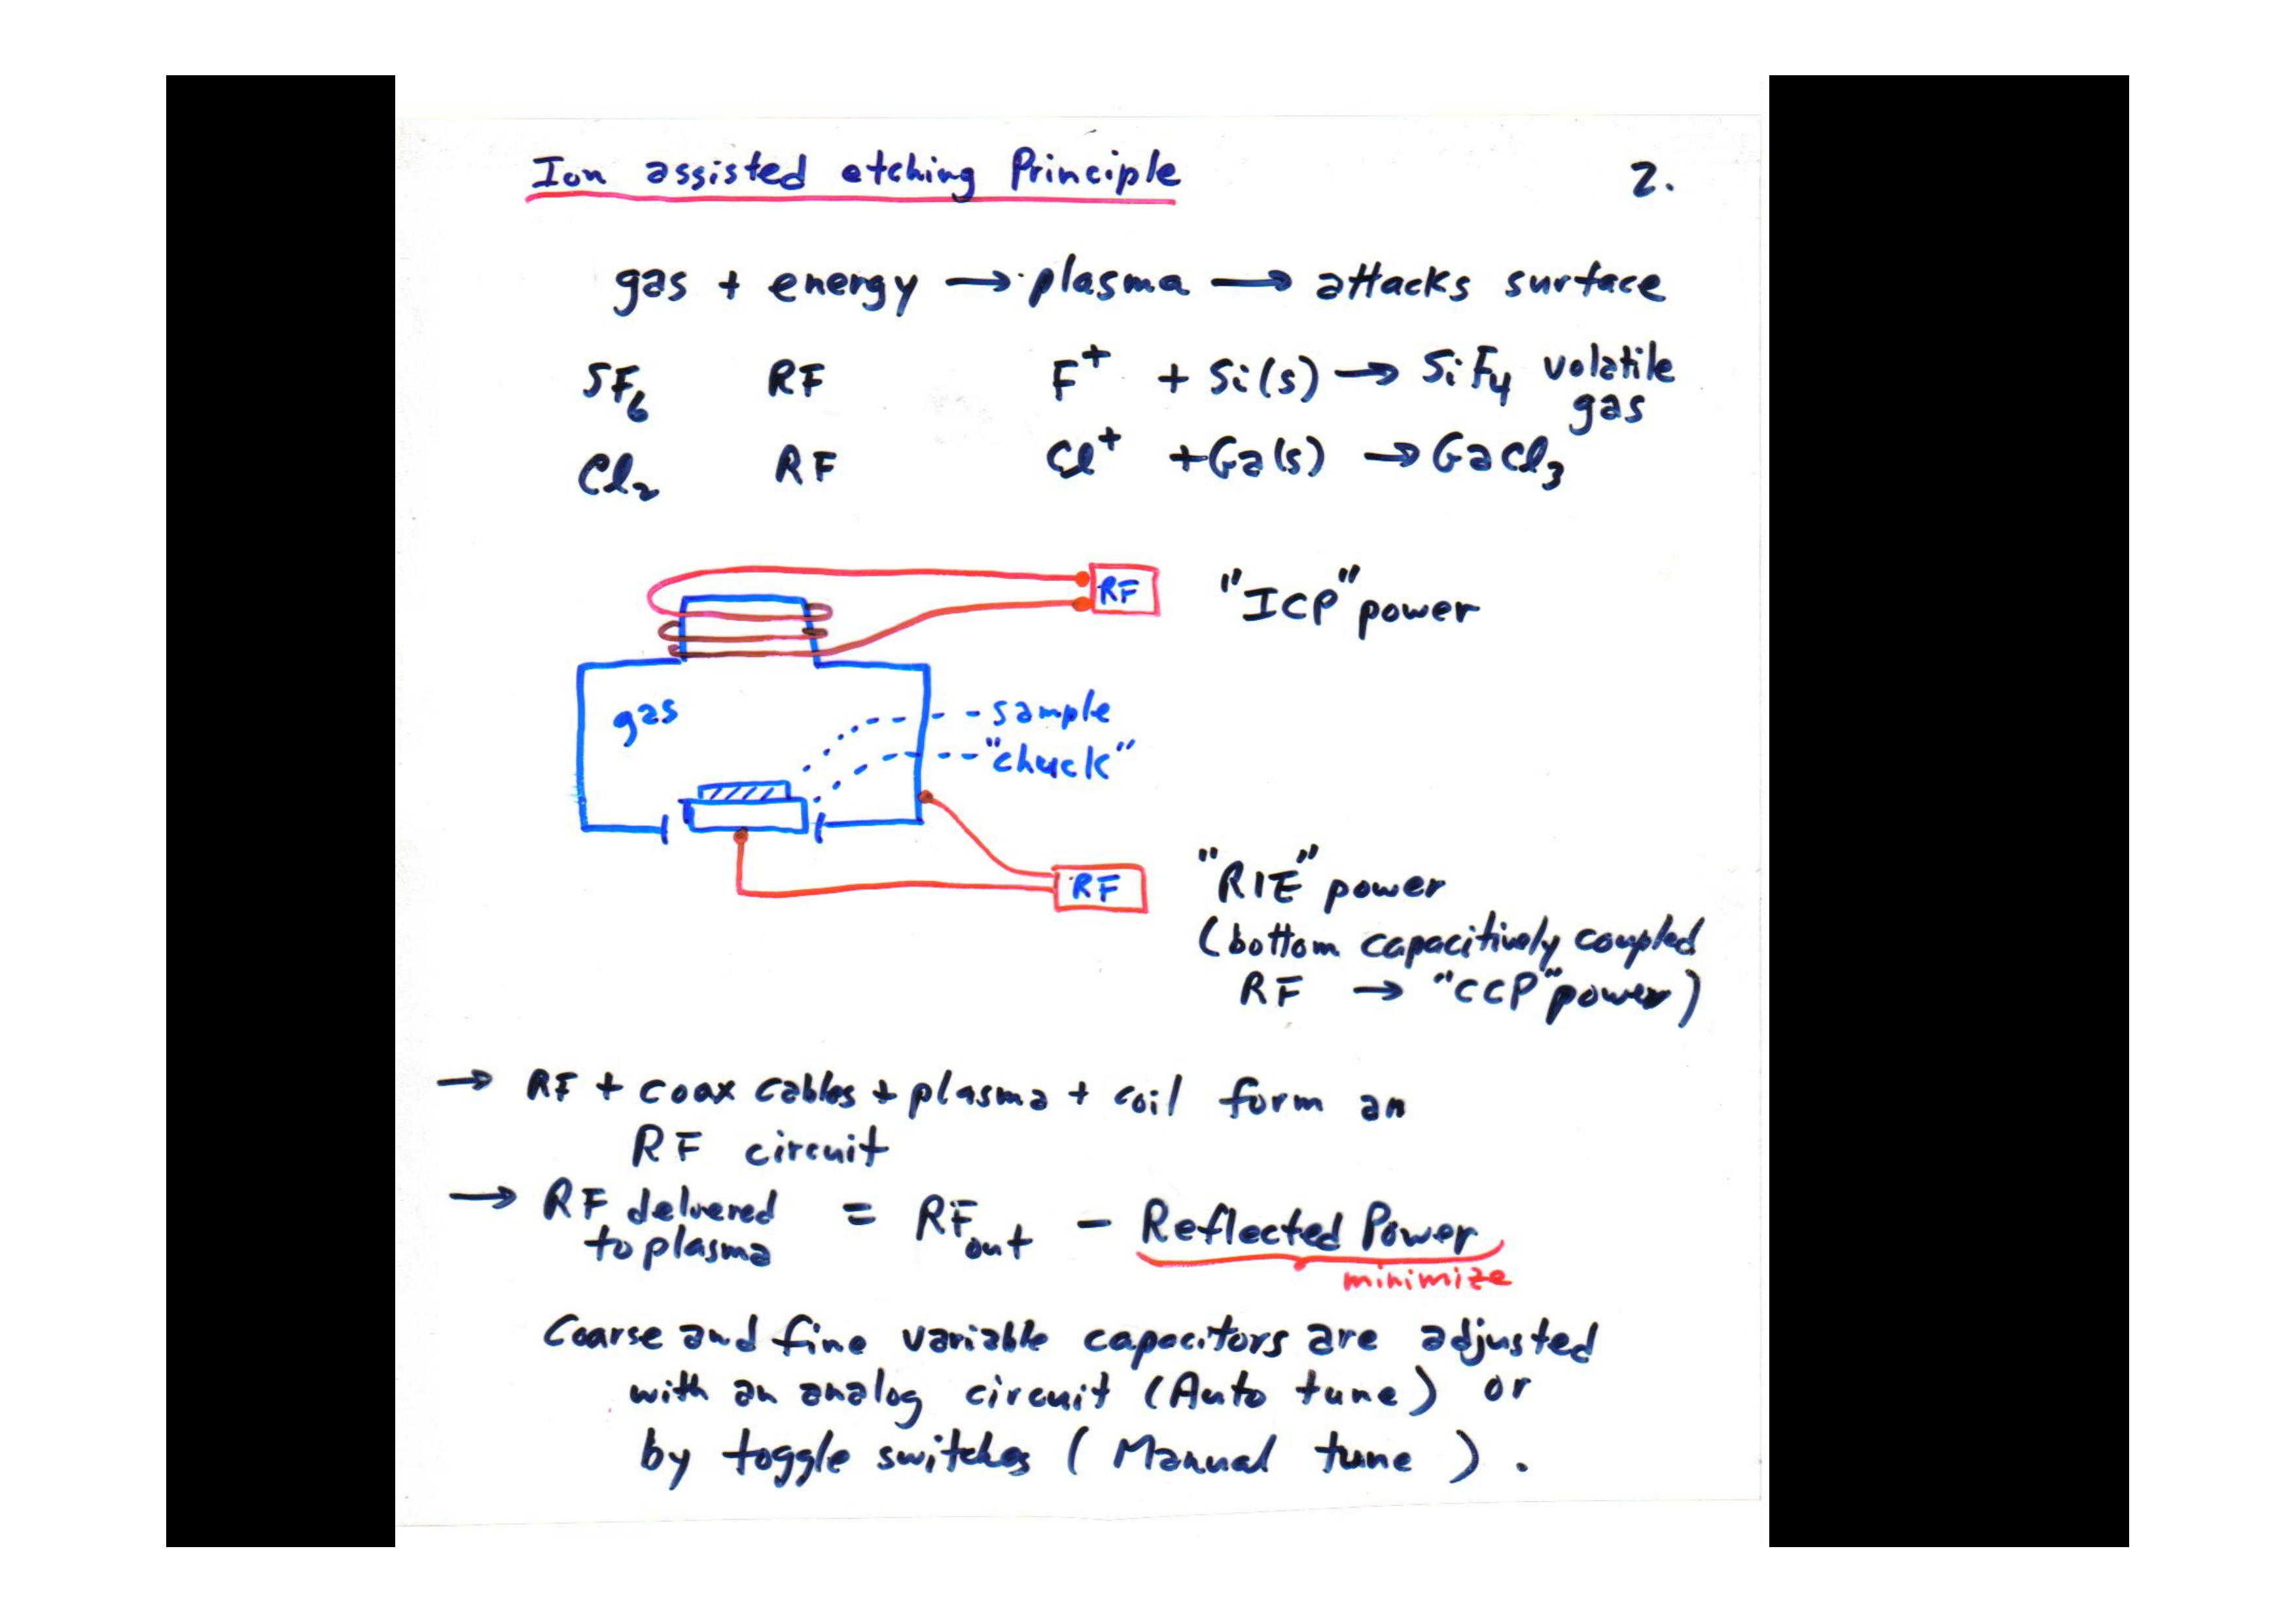 Ion assisted etching Principle 2.
gas + energy → plasma → attacks surface
SF6 RF F+ + Si(s) → SiF4 volatile
gas
Cl2 RF Cl+ + Ga(s) → GaCl3
RF "ICP" power
gas
sample
"chuck"
RF "RIE" power
(bottom capacitively coupled
RF → "CCP" power)
→ RF + coax cables + plasma + coil form an
RF circuit
→ RF delivered = RFout - Reflected Power
to plasma
minimize
Coarse and fine variable capacitors are adjusted
with an analog circuit (Auto tune) or
by toggle switches (Manual tune).